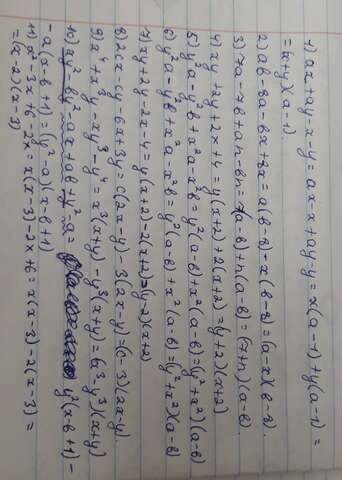 1) ax+ay-x-y=ax-x+ay-y=x(a-1)+y(a-1)=
=(x+y)(a-1)
2) ab-8a-bx+8x=a(b-8)-x(b-8)=(a-x)(b-8).
3) 7a-7b+an-bn=7(a-b)+n(a-b)=(7+n)(a-b).
4) xy+2y+2x+4=y(x+2)+2(x+2)=(y+2)(x+2)
5) y²a-y²b+x²a-x²b=y²(a-b)+x²(a-b)=(y²+x²)(a-b)
6) y²a-y²b+x²a-x²b=y²(a-b)+x²(a-b)=(y²+x²)(a-b)
7) xy+2y-2x-4=y(x+2)-2(x+2)=(y-2)(x+2)
8) 2cx-cy-6x+3y=c(2x-y)-3(2x-y)=(c-3)(2x-y).
9) x⁴+x³y-xy³-y⁴=x³(x+y)-y³(x+y)=(x³-y³)(x+y)
10) xy²-by²-ax+ab+y²-a= y²(x-b+1)-
-a(x-b+1)=(y²-a)(x-b+1)
11) x²-3x+6-2x=x(x-3)-2x+6=x(x-3)-2(x-3)=
=(x-2)(x-3)